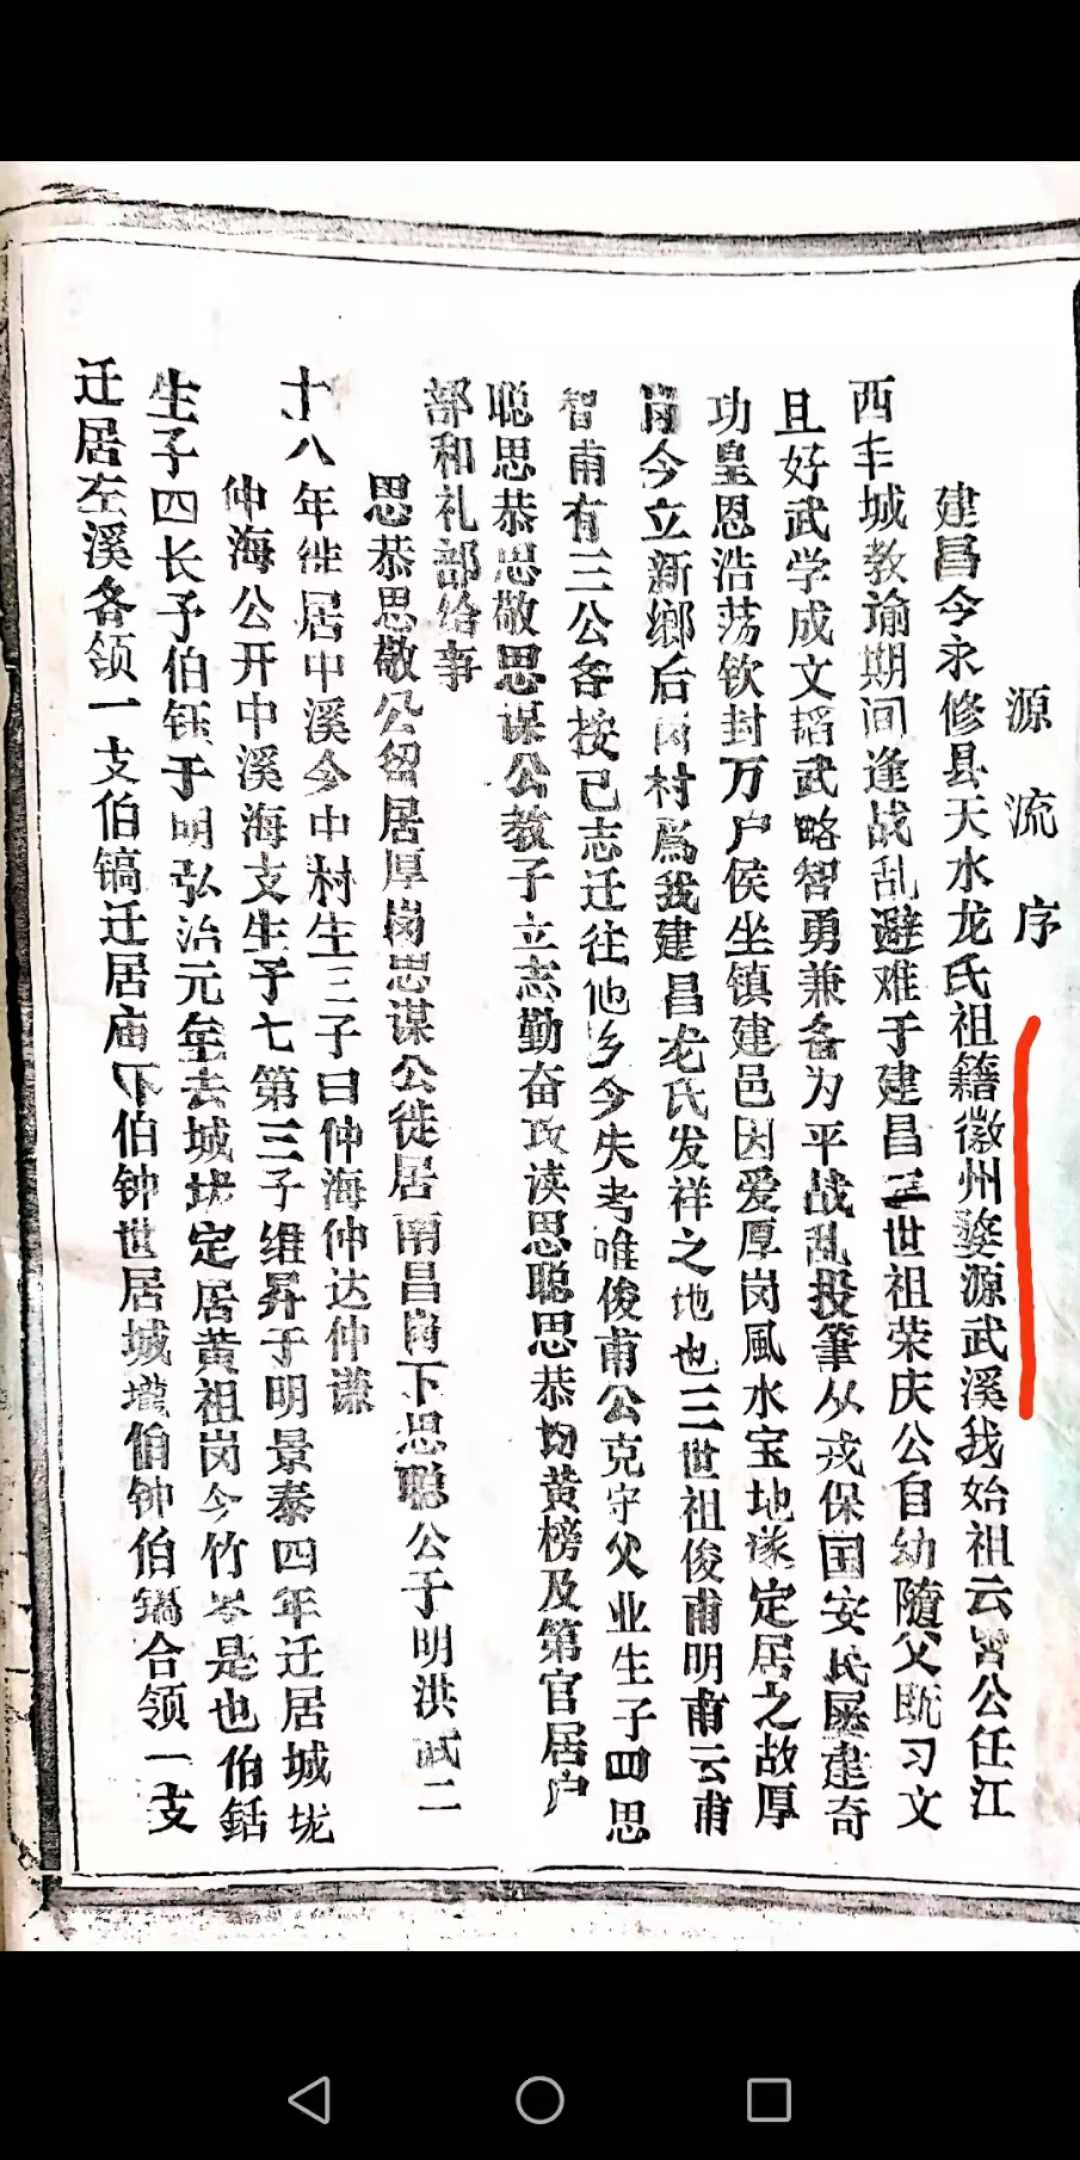 源流序
建昌今永修县天水龙氏祖籍徽州婺源武溪我始祖云霄公任江
西丰城教谕期间逢战乱避难于建昌二世祖荣庆公自幼隨父既习文
且好武学成文韬武略智勇兼备为平战乱投筆从戎保国安民屡建奇
功皇恩浩荡钦封万户侯坐镇建邑因爱厚岗風水宝地遂定居之故厚
岗今立新鄉后岗村爲我建昌龙氏发祥之地也三世祖俊甫明甫云甫
智甫有三公各按己志迁往他乡今失考唯俊甫公克守父业生子四思
聪思恭思敬思谋公教子立志勤奋攻读思聪思恭均黄榜及第官居户
部和礼部给事
思恭思敬公留居厚岗思谋公徙居南昌岗下思聪公于明洪武二
十八年徙居中溪今中村生三子曰仲海仲达仲谦
仲海公开中溪海支生子七第三子维昇于明景泰四年迁居城垅
生子四长子伯钰于明弘治元年去城垅定居黄祖岗今竹岑是也伯銛
迁居左溪各领一支伯镐迁居庙下伯钟世居城壠伯钟伯镐合领一支